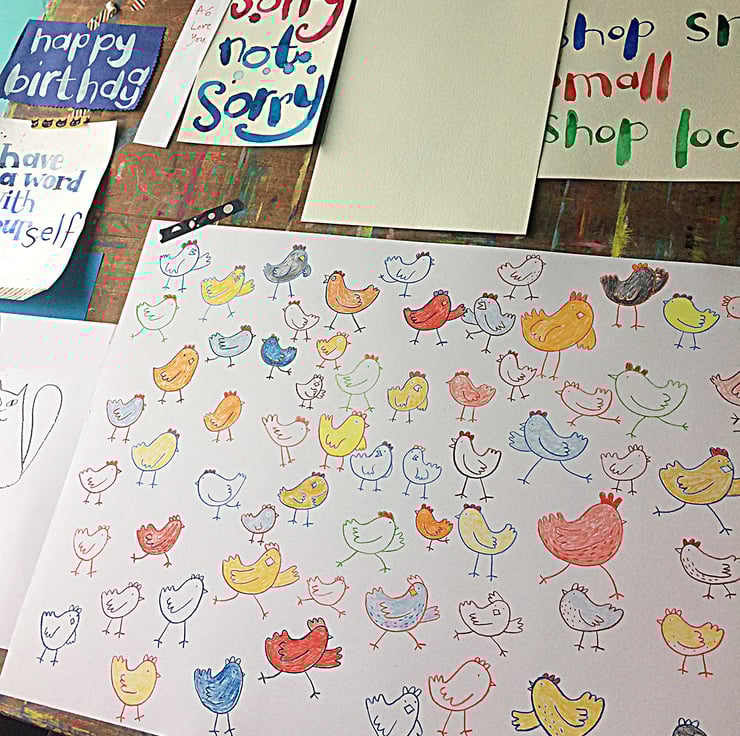 happy
birthday
A6
Love
You
sorry
not.
sorry
shop sm
small
shop loc
have
a word
with
ourself